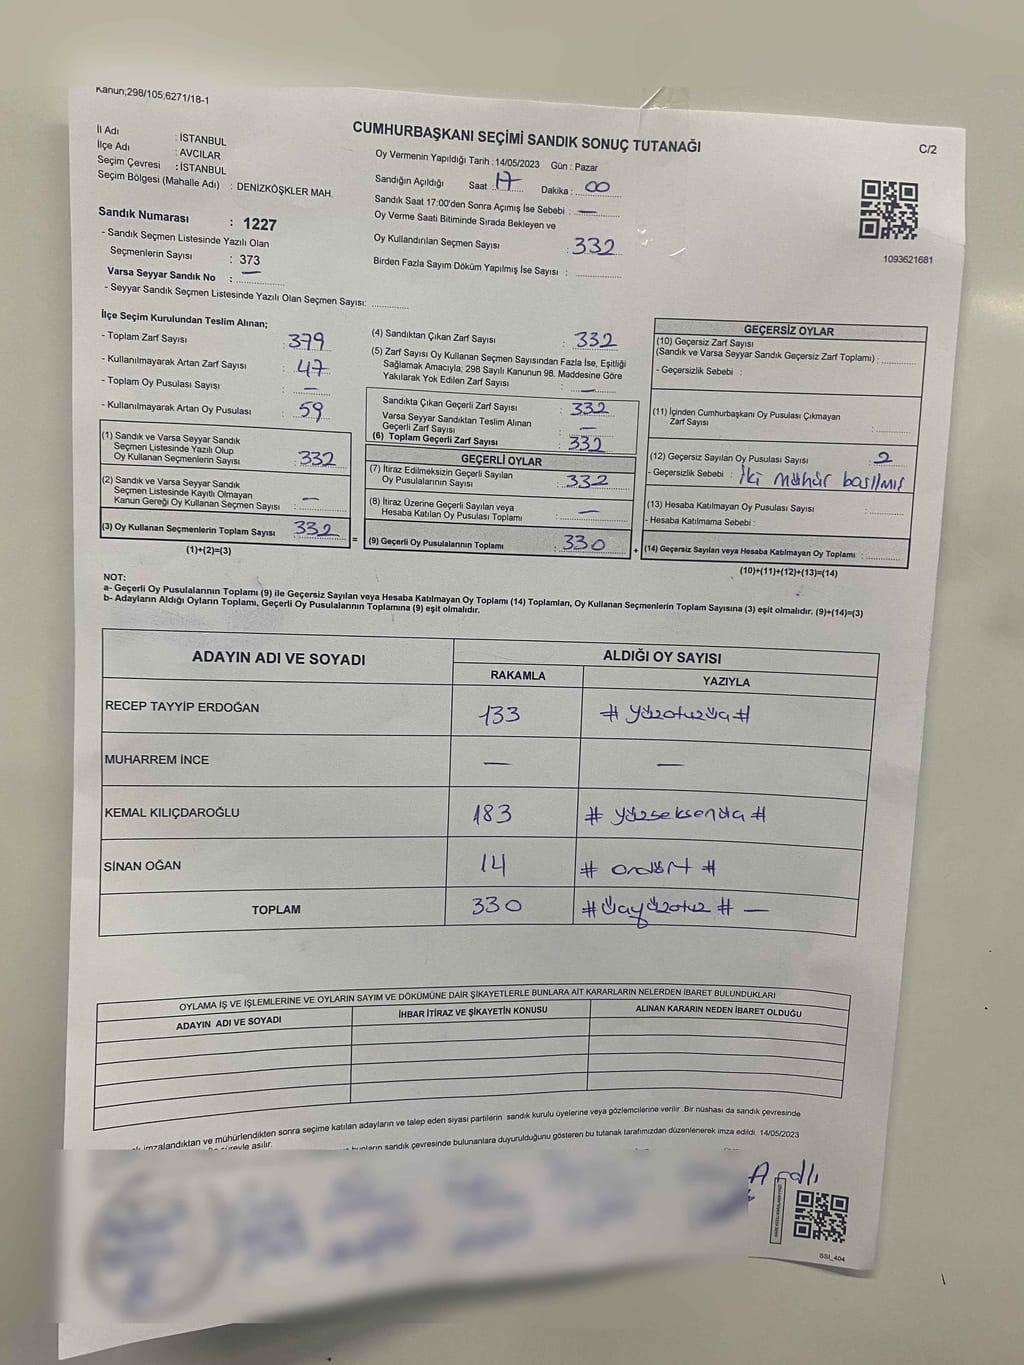 Kanun;298/105,6271/18-1
CUMHURBAŞKANI SEÇİMİ SANDIK SONUÇ TUTANAĞI
C/2
İl Adı : İSTANBUL
İlçe Adı : AVCILAR
Seçim Çevresi : İSTANBUL
Seçim Bölgesi (Mahalle Adı) : DENİZKÖŞKLER MAH.
Sandık Numarası : 1227
- Sandık Seçmen Listesinde Yazılı Olan
Seçmenlerin Sayısı : 373
Varsa Seyyar Sandık No : —
- Seyyar Sandık Seçmen Listesinde Yazılı Olan Seçmen Sayısı:
Oy Vermenin Yapıldığı Tarih : 14/05/2023 Gün : Pazar
Sandığın Açıldığı Saat : 17 Dakika : 00
Sandık Saat 17:00'den Sonra Açımış İse Sebebi : —
Oy Verme Saati Bitiminde Sırada Bekleyen ve
Oy Kullandırılan Seçmen Sayısı : 332
Birden Fazla Sayım Döküm Yapılmış İse Sayısı :
1093621681
İlçe Seçim Kurulundan Teslim Alınan;
- Toplam Zarf Sayısı : 379
- Kullanılmayarak Artan Zarf Sayısı : 47
- Toplam Oy Pusulası Sayısı : —
- Kullanılmayarak Artan Oy Pusulası : 59
(1) Sandık ve Varsa Seyyar Sandık
Seçmen Listesinde Yazılı Olup
Oy Kullanan Seçmenlerin Sayısı : 332
(2) Sandık ve Varsa Seyyar Sandık
Seçmen Listesinde Kayıtlı Olmayan
Kanun Gereği Oy Kullanan Seçmen Sayısı : —
(3) Oy Kullanan Seçmenlerin Toplam Sayısı 332
(1)+(2)=(3)
(4) Sandıktan Çıkan Zarf Sayısı : 332
(5) Zarf Sayısı Oy Kullanan Seçmen Sayısından Fazla İse, Eşitliği
Sağlamak Amacıyla; 298 Sayılı Kanunun 98. Maddesine Göre
Yakılarak Yok Edilen Zarf Sayısı : —
Sandıkta Çıkan Geçerli Zarf Sayısı : 332
Varsa Seyyar Sandıktan Teslim Alınan
Geçerli Zarf Sayısı : —
(6) Toplam Geçerli Zarf Sayısı : 332
GEÇERLİ OYLAR
(7) İtiraz Edilmeksizin Geçerli Sayılan
Oy Pusulalarının Sayısı : 332
(8) İtiraz Üzerine Geçerli Sayılan veya
Hesaba Katılan Oy Pusulası Toplamı : —
= (9) Geçerli Oy Pusulalarının Toplamı : 330 +
GEÇERSİZ OYLAR
(10) Geçersiz Zarf Sayısı
(Sandık ve Varsa Seyyar Sandık Geçersiz Zarf Toplamı) :
- Geçersizlik Sebebi :
(11) İçinden Cumhurbaşkanı Oy Pusulası Çıkmayan
Zarf Sayısı :
(12) Geçersiz Sayılan Oy Pusulası Sayısı : 2
- Geçersizlik Sebebi : İki mühür basılmış
(13) Hesaba Katılmayan Oy Pusulası Sayısı :
- Hesaba Katılmama Sebebi :
(14) Geçersiz Sayılan veya Hesaba Katılmayan Oy Toplamı :
(10)+(11)+(12)+(13)=(14)
NOT:
a- Geçerli Oy Pusulalarının Toplamı (9) ile Geçersiz Sayılan veya Hesaba Katılmayan Oy Toplamı (14) Toplamları, Oy Kullanan Seçmenlerin Toplam Sayısına (3) eşit olmalıdır. (9)+(14)=(3)
b- Adayların Aldığı Oyların Toplamı, Geçerli Oy Pusulalarının Toplamına (9) eşit olmalıdır.
ADAYIN ADI VE SOYADI ALDIĞI OY SAYISI
RAKAMLA YAZIYLA
RECEP TAYYİP ERDOĞAN 133 # Yüzotuzüç #
MUHARREM İNCE — —
KEMAL KILIÇDAROĞLU 183 # yüzseksenüç #
SİNAN OĞAN 14 # ondört #
TOPLAM 330 # Üçyüzotuz # —
OYLAMA İŞ VE İŞLEMLERİNE VE OYLARIN SAYIM VE DÖKÜMÜNE DAİR ŞİKAYETLERLE BUNLARA AİT KARARLARIN NELERDEN İBARET BULUNDUKLARI
ADAYIN ADI VE SOYADI İHBAR İTİRAZ VE ŞİKAYETİN KONUSU ALINAN KARARIN NEDEN İBARET OLDUĞU
imzalandıktan ve mühürlendikten sonra seçime katılan adayların ve talep eden siyasi partilerin sandık kurulu üyelerine veya gözlemcilerine verilir .Bir nüshası da sandık çevresinde
süreyle asılır.
bunların sandık çevresinde bulunanlara duyurulduğunu gösteren bu tutanak tarafımızdan düzenlenerek imza edildi. 14/05/2023
SSI_404